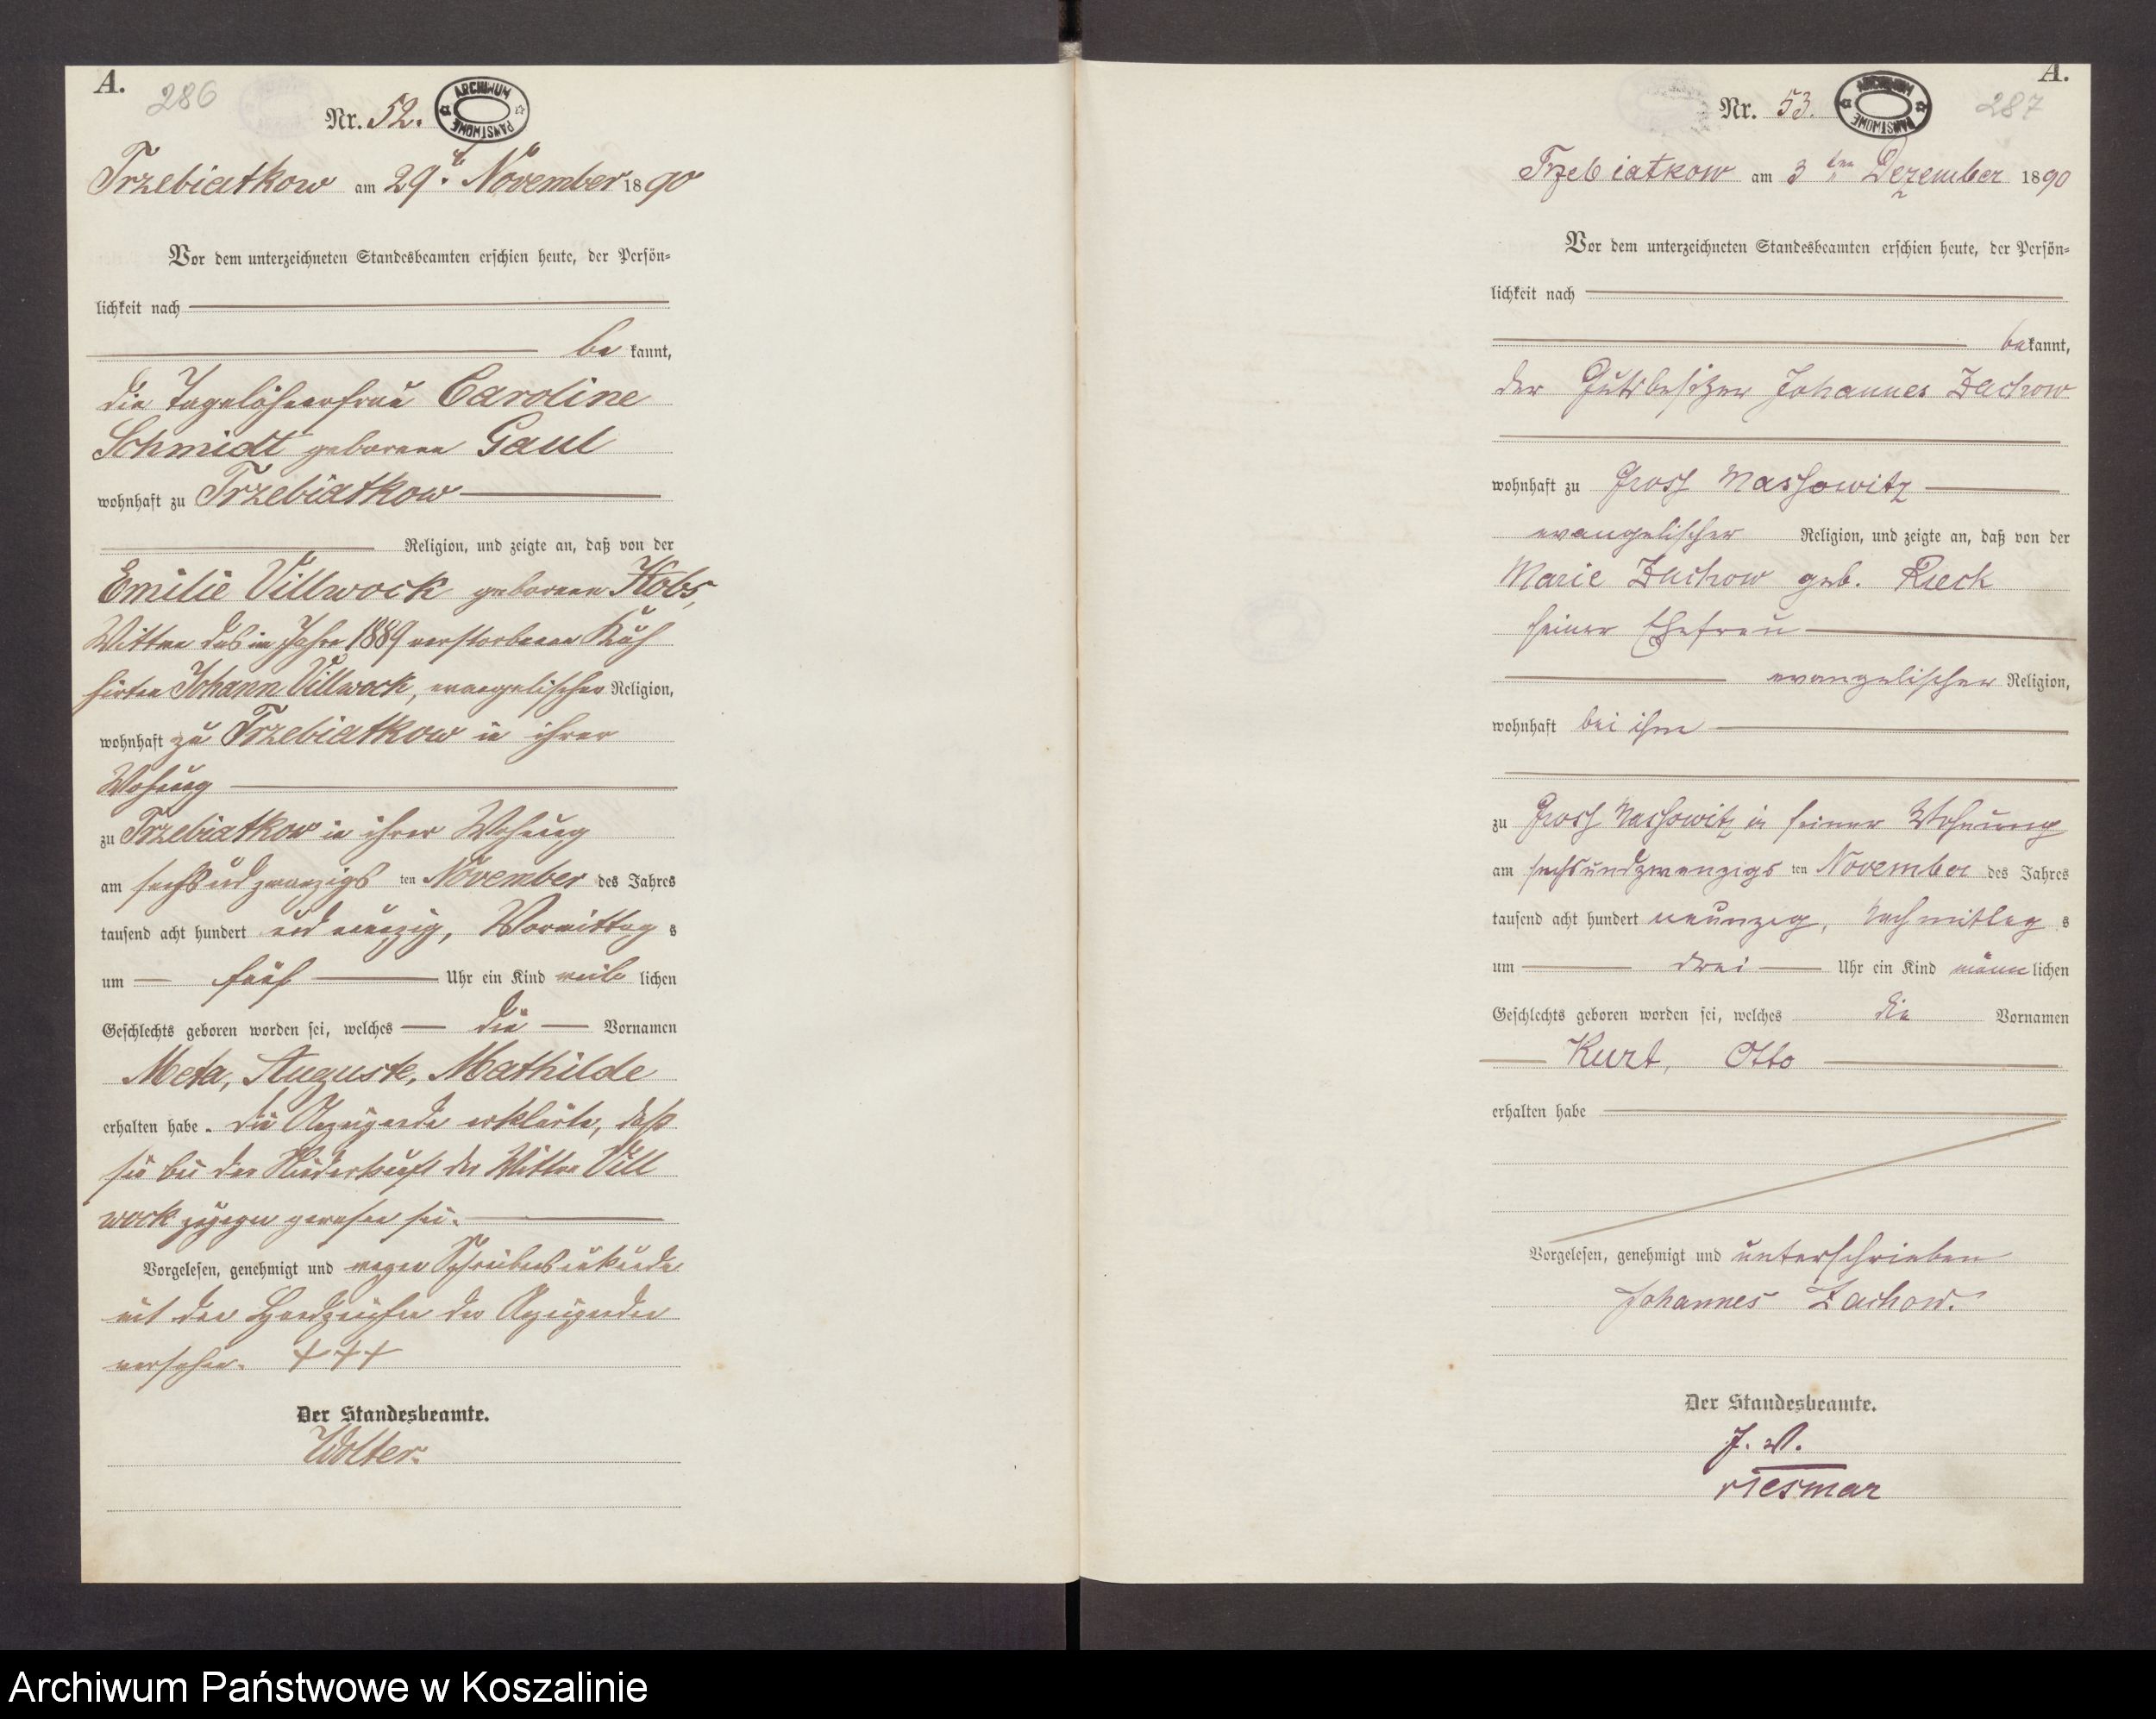 A.
286
Nr. 52.
ARCHIWUM PAŃSTWOWE
Trzebiatkow am 29. November 1890
Vor dem unterzeichneten Standesbeamten erschien heute, der Persön-
lichkeit nach
be kannt,
die Tagelöhnerfrau Caroline
Schmidt geborene Gaul
wohnhaft zu Trzebiatkow
Religion, und zeigte an, daß von der
Emilie Villwock geborene Kobs,
Wittwe des im Jahre 1889 verstorbenen Kuh
hirten Johann Villwock, evangelischer Religion,
wohnhaft zu Trzebiatkow in ihrer
Wohnung
zu Trzebiatkow in ihrer Wohnung
am sechsundzwanzigs ten November des Jahres
tausend acht hundert und neunzig, Vormittag s
um fünf Uhr ein Kind weib lichen
Geschlechts geboren worden sei, welches die Vornamen
Meta, Auguste, Mathilde
erhalten habe. Die Anzeigende erklärte, daß
sie bei der Niederkunft der Wittwe Vill
wock zugegen gewesen sei.
Vorgelesen, genehmigt und wegen Schreibensunkunde
mit den Handzeichen der Anzeigenden
versehen. +++
Der Standesbeamte.
Wolter.
A.
287
Nr. 53.
ARCHIWUM PAŃSTWOWE
Trzebiatkow am 3ten Dezember 1890
Vor dem unterzeichneten Standesbeamten erschien heute, der Persön-
lichkeit nach
bekannt,
der Gutsbesitzer Johannes Zachow
wohnhaft zu Gross Massowitz
evangelischer Religion, und zeigte an, daß von der
Marie Zachow geb. Rieck
seiner Ehefrau
evangelischer Religion,
wohnhaft bei ihm
zu Gross Massowitz in seiner Wohnung
am sechsundzwanzigs ten November des Jahres
tausend acht hundert neunzig, Nachmittag s
um drei Uhr ein Kind männlichen
Geschlechts geboren worden sei, welches die Vornamen
Kurt, Otto
erhalten habe
Vorgelesen, genehmigt und unterschrieben
Johannes Zachow.
Der Standesbeamte.
J. V.
Archiwum Państwowe w Koszalinie